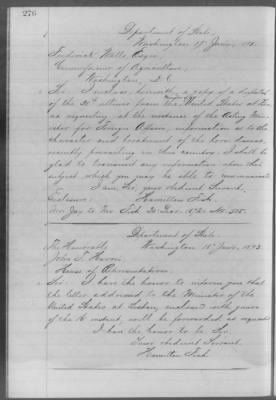 276
Department of State,
Washington 17" Jan'y, 1873.
Frederick Watts, Esqre,
Commissioner of Agriculture,
Washington, D.C.
Sir: I enclose, herewith, a copy of a dispatch
of the 20th ultimo from the United States
requesting, at the instance of the Acting Min-
ister for Foreign Affairs, information as to the
character and treatment of the horse disease,
recently prevailing in this country. I shall be
glad to transmit any information upon this
subject which you may be able to communicate.
I am, Sir, your obedient servant,
Hamilton Fish.
Enclosure:
Mr. Jay to Mr. Fish 20 Dec. 1872. No. 525.
Department of State,
Washington, 18" Jan'y, 1873.
The Honorable
John T.
House of Representatives.
Sir: I have the honor to inform you that
the letter addressed to the Minister of the
United States at Lisbon, enclosed with yours
of the 16 instant, will be forwarded as requested.
I have the honor to be, Sir,
Your obedient servant,
Hamilton Fish